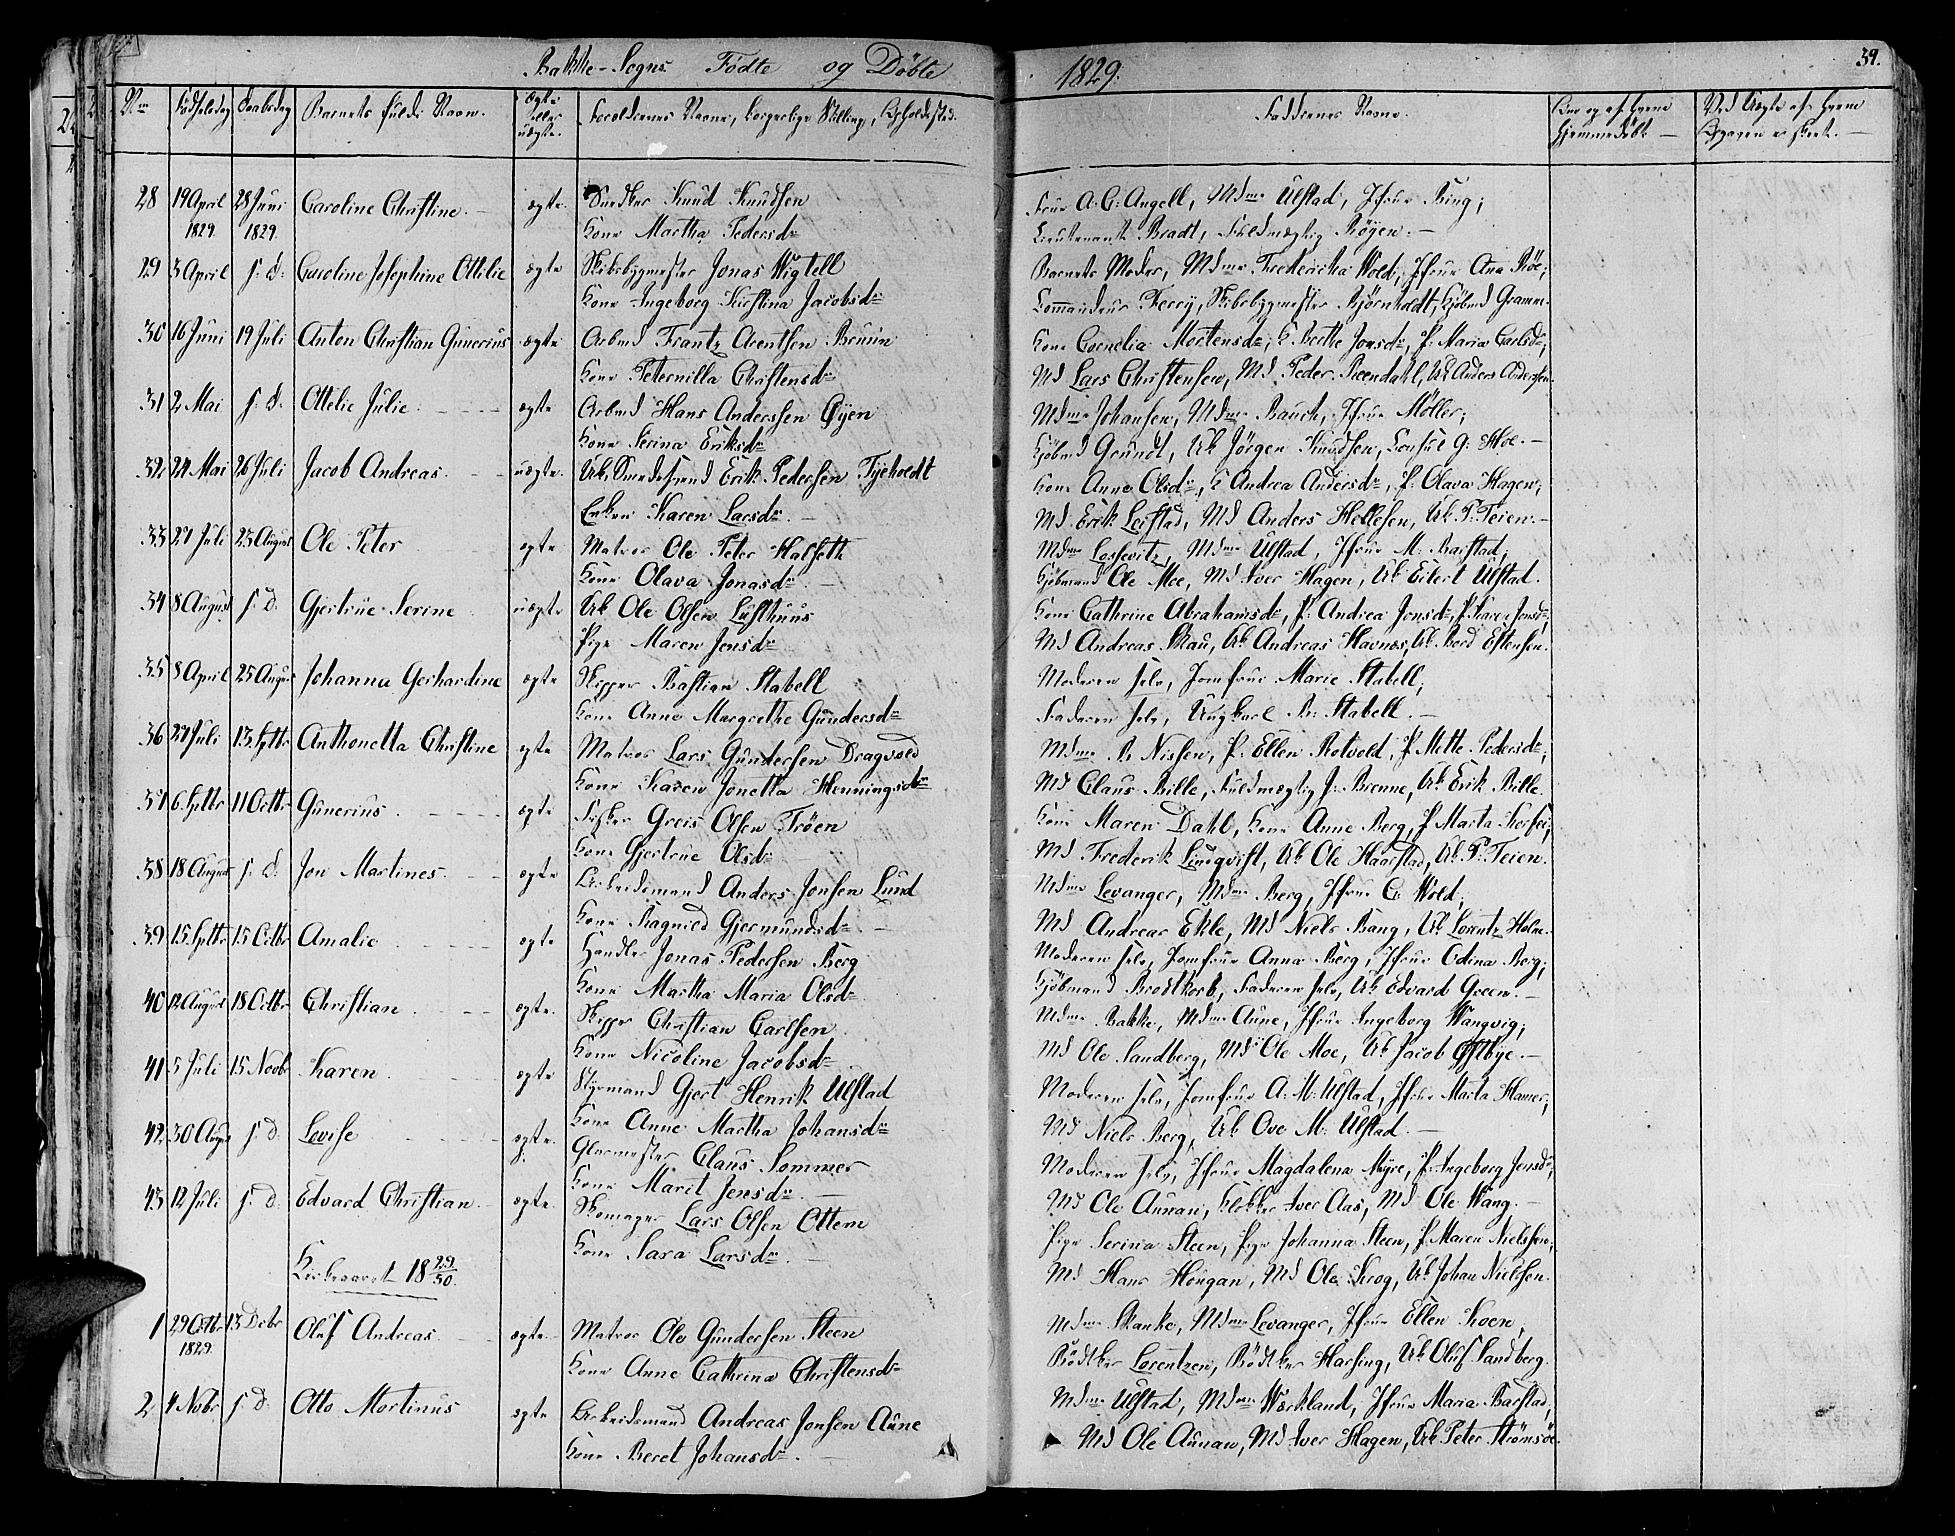 Bakke-Sogns Fødte og Døbte
1829.
39.
Nr. Fødselsdag Daabsdag Barnets fulde Navn. ægte eller uægte. Forældrenes Navne, borgerlige Stilling, Opholdssted. Faddernes Navne.
28 19 April 1829 28 Juni 1829. Caroline Christine. ægte. Snedker Knud Knudsen
Kone Martha Pedersdr
Frue A. C. Angell, Mdme Ulstad, Jfrue Bing;
Lieutenant Bradt, Fuldmægtig Röyen.
29 3 April s. d. Caroline Josephine Ottilie ægte Skibsbygmester Jonas Wigtell
Kone Ingeborg Kirstina Jacobsdr
Barnets Moder, Mdme Frederikka Wold, Jfrue Ana Röe;
Commandeur Ferry, Skibsbygmester Bjørnholdt, Kjøbmd Gramm.
30 16 Juni 19 Juli Anton Christian Gunerius ægte Arbmd Frantz Arentsen Bruun
Kone Peternilla Christensdr
Kone Cornelia Mortensdr, K Berthe Jonsdr, P. Maria Carlsdr,
Md Lars Christensen, Md Peder Reendahl, Uk Anders Andersen.
31 2 Mai s. d. Ottilie Julie ægte Arbmd Hans Anderssen Øyen
Kone Serina Eriksdr
Mdme Johansen, Mdme Bauck, Jfrue Möller;
Kjöbmd Grundt, Uk Jörgen Knudsen, Consul G. Hoe.
32 24 Mai 26 Juli Jacob Andreas. uægte. Uk Smedesvend Erik Pedersen Tyeholdt
Enken Karen Larsdr.
Kone Anne Olsdr, K Andrea Andersdr, P. Olava Hagen;
Md Erik Leistad, Md Anders Hellesen, Uk P. Teien.
33 27 Juli 23 August Ole Peter ægte Matros Ole Peter Halseth
Kone Olava Jonasdr.
Mdme Lossevitz, Mdme Ulstad, Jfrue M. Barstad;
Kjöbmand Ole Moe, Md Iver Hagen, Uk Eilert Ulstad.
34 8 August s. d. Gjertrue Serine uægte Uk Ole Olsen Lufthuus
Pige Maren Jensdr
Kone Cathrine Abrahamsdr, P. Andrea Jonsdr, P. Karen Jonsdr,
Md Andreas Skau, Uk Andreas Havnæs, Uk Bord Estensen.
35 8 April 23 August Johanna Gerhardine ægte Skipper Bastian Stabell
Kone Anne Margrethe Gundersdr
Moderen selv, Jomfrue Marie Stabell;
Faderen selv, Ungkarl B. Stabell.
36 27 Juli 13 Septbr Anthonetta Christine ægte Matros Lars Gundersen Dragvold
Kone Karen Jonetta Henningsdr
Mdme B Nissen, P. Ellen Rotvold, P Mette Pedersdr;
Md Claus Bille, Fuldmægtig J. Brenne, Uk Erik Bille.
37 6 Septbr 11 Octbr Gunerius. ægte Fisker Greis Olsen Tröen
Kone Gjertrue Olsdr
Kone Maren Dahl, Kone Anne Berg, P Marta
Md Frederik Lindqvist, Uk Ole Haarstad, Uk P. Teien.
38 18 August s. d. Jon Martines. ægte Arbeidsmand Anders Jonsen Lund
Kone Ragnild Gjermundsdr
Mdme Levanger, Mdme Berg, Jfrue C. Wold;
Md Andreas Ekle, Md Niels Bang, Uk Lorentz Holm.
39 15 Septbr 15 Octbr Amalie ægte Handler Jonas Pedersen Berg
Kone Martha Maria Olsdr
Moderen selv, Jomfrue Anna Berg, Jfrue Edina Berg;
Kjöbmand Brodtkorb, Faderen selv, Uk Edvard Green.
40 12 August 18 Octbr Christian ægte. Skipper Christian Carlsen
Kone Nicoline Jacobsdr
Mdme Bakke, Mdme Aune, Jfrue Ingeborg Wangvig;
Md Ole Sandberg, Md Ole Moe, Uk Jacob Østbye.
41 5 Juli 15 Novbr Karen ægte Styrmand Gjert Henrik Ulstad
Kone Anne Martha Johansdr
Moderen selv, Jomfrue A. M. Ulstad, Jfrue Marta Hamer;
Md Niels Berg, Uk Ove M. Ulstad.
42 30 August s. d. Lovise ægte. Glarmester Claus Sommer
Kone Marit Jensdr.
Moderen selv, Jfrue Magdalena Myre, P. Ingeborg Jensdr;
Md Ole Aunan, Klokker Iver Aas, Md Ole Wang.
43 12 Juli s. d. Edvard Christian ægte. Skomager Lars Olsen Ottem
Kone Sara Larsdr.
Pige Serina Steen, Pige Johanna Steen, P Maren Nielssen;
Md Hans Hougan, Md Ole Krog, Uk Johan Nielsen.
Kirkeaaret 18 29/30.
1 29 Octbr 1829. 13 Decbr Oluf Andreas. ægte Matros Ole Gundersen Steen
Kone Anne Cathrina Christensdr
Mdme Skanke, Mdme Levanger, Jfrue Ellen Koen,
Bödtker Lorentzen, Bödtker Harsing, Uk Oluf Sandberg.
2 4 Nobr s. d. Otto Mortinus ægte Arbeidsmand Andreas Jonsen Aune
Kone Beret Johansdr.
Mdme Ulstad, Mdme Wærkland, Jfrue Maria Barstad,
Md Ole Aunan, Md Iver Hagen, Uk Peter Strömsöe.